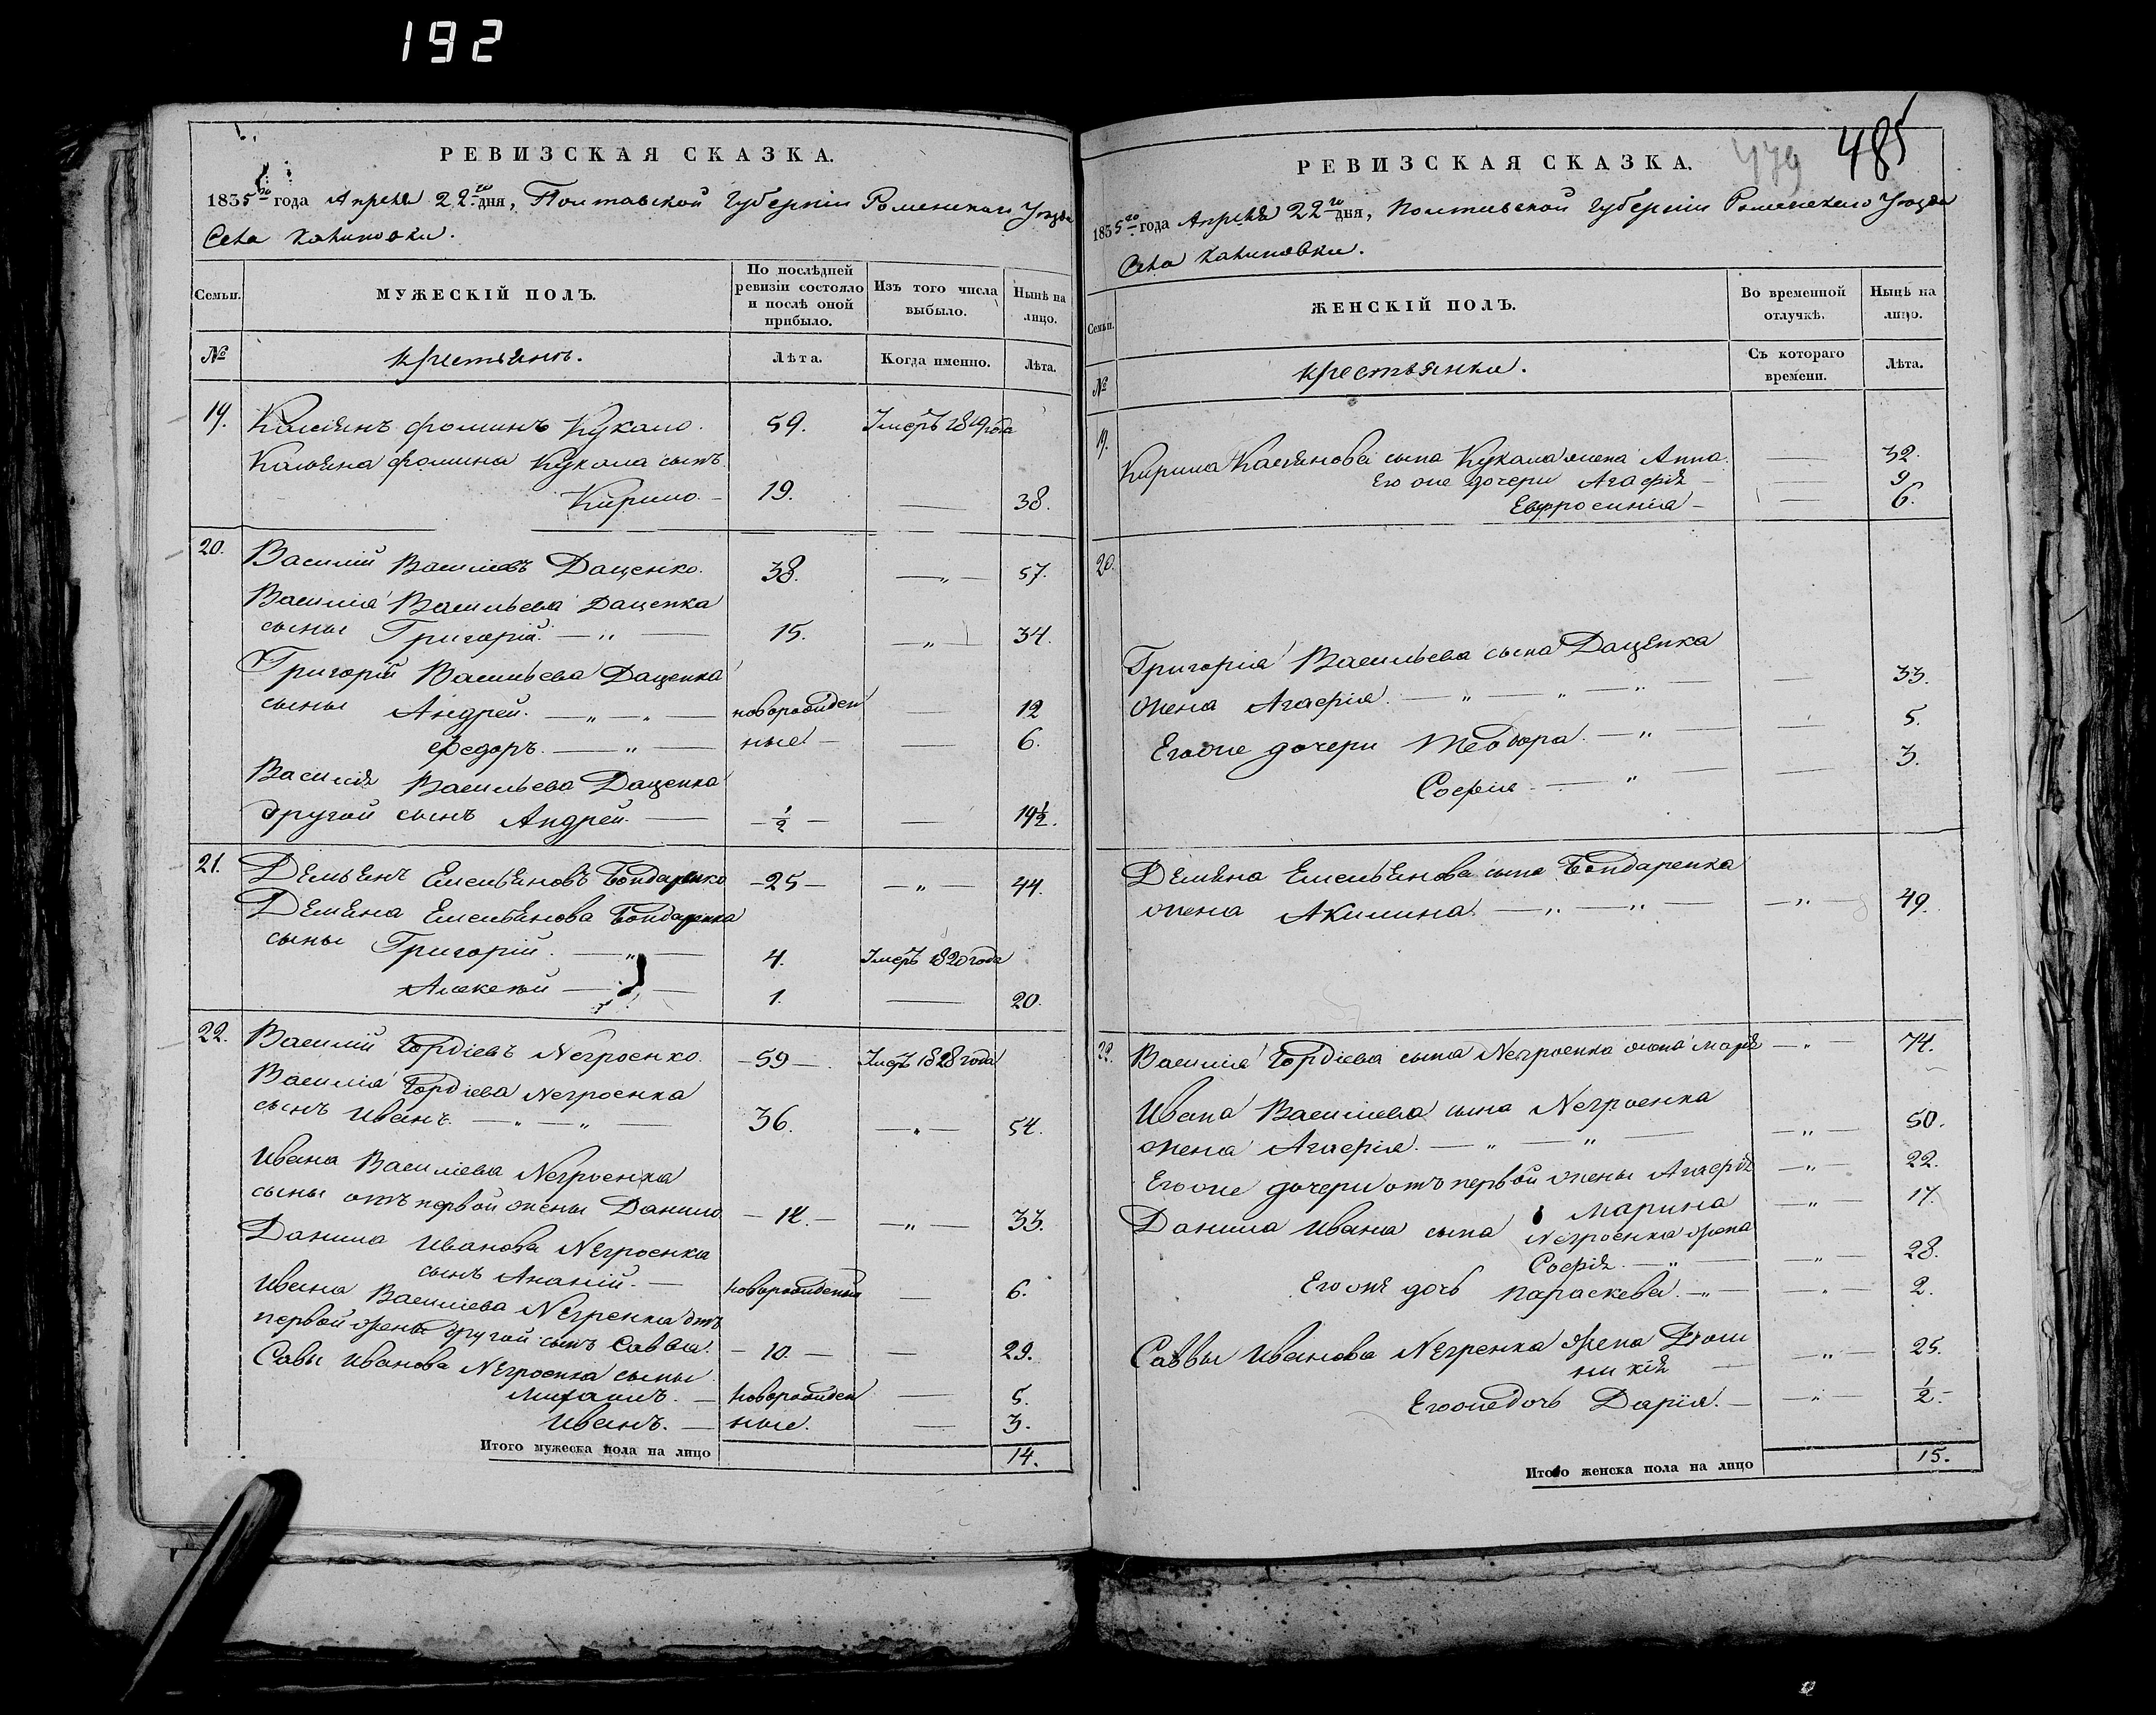 192
РЕВИЗСКАЯ СКАЗКА.
1835го года Апреля 22го дня, Полтавской Губерніи Роменскаго Уезда
Села Калиновки.
Семьи.
МУЖЕСКІЙ ПОЛЪ.
По послѣдней ревизіи состояло и послѣ оной прибыло.
Изъ того числа выбыло.
Нынѣ на лицо.
№
крестьянъ.
Лѣта.
Когда именно.
Лѣта.
19. Касіянъ Фоминъ Кукало. 59. Умеръ 1819 года
Касіяна Фомина Кукала сынъ
Кирило. 19. — 38.
20. Василій Васильевъ Даценко. 38. — 57.
Василія Васильева Даценка
сыны Григорій. 15. — 34.
Григорій Васильева Даценка
сыны Андрей. новорожден — 12
Федоръ. ные. — 6.
Василія Васильева Даценка
другой сынъ Андрей. ½ — 19½.
21. Демьянъ Емельяновъ Бондаренко 25 — 44.
Демяна Емельянова Бондаренка
сыны Григорій. 4. Умеръ 1820 года
Алексѣй 1. — 20.
22. Василій Гордіевъ Негроенко. 59 Умеръ 1828 года
Василія Гордіева Негроенка
сынъ Иванъ. 36. — 54.
Ивана Василіева Негроенка
сыны отъ первой жены Данило 14. — 33.
Данила Иванова Негроенка
сынъ Ананій. — новорожденный — 6.
Ивана Василіева Негренка отъ
первой жены другой сынъ Савва. 10. — 29.
Савы Иванова Негроенка сыны
Михаилъ. — новорожден — 5.
Иванъ. — ные. — 3.
Итого мужеска пола на лицо 14.
РЕВИЗСКАЯ СКАЗКА.
479 485
1835го года Апреля 22го дня, Полтавской Губерніи Роменскаго Уезда
Села Калиновки.
Семьи.
ЖЕНСКІЙ ПОЛЪ.
Во временной отлучкѣ.
Нынѣ на лицо.
№
крестьянки.
Съ котораго времени.
Лѣта.
19. Кирила Касіянова сына Кукала жена Анна. — 32.
Его же дочери Агафія — 9
Евфросинія — 6.
20.
Григорія Васильева сына Даценка
жена Агафія. — 33.
Его же дочери Теодора. — 5.
Софія. — 3.
Демяна Емельянова сына Бондаренка
жена Акилина. — 49.
22. Василія Гордіева сына Негроенка жена Марія — 74.
Ивана Василіева сына Негроенка
жена Агафія. — 50.
Его же дочери отъ первой жены Агафія — 22.
Марина — 17.
Данила Ивана сына Негроенка жена
Софія. — 28.
Его же дочь Параскева. — 2.
Саввы Иванова Негренка жена Дом
никія — 25.
Его же дочь Дарія. — ½
Итого женска пола на лицо 15.